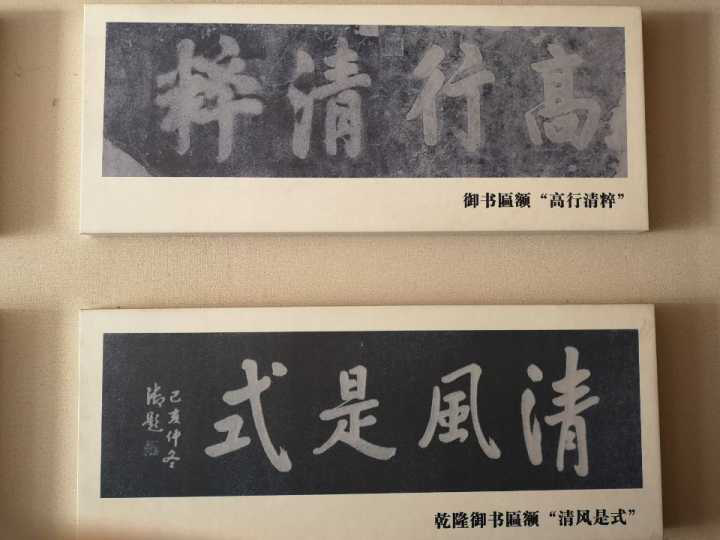 高行清粹
御书匾额“高行清粹”
清風是式
己亥仲冬
御題
乾隆御书匾额“清风是式”